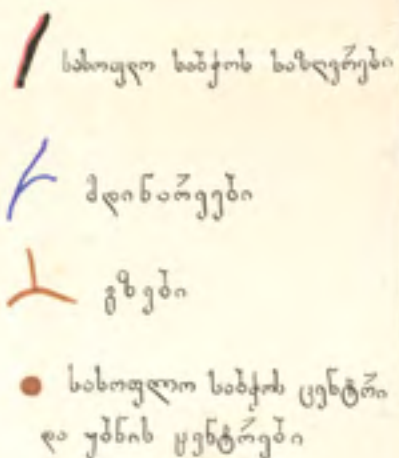 სასოფლო საბჭოს საზღვრები
მდინარეები
გზები
სასოფლო საბჭოს ცენტრი
და უბნის ცენტრები